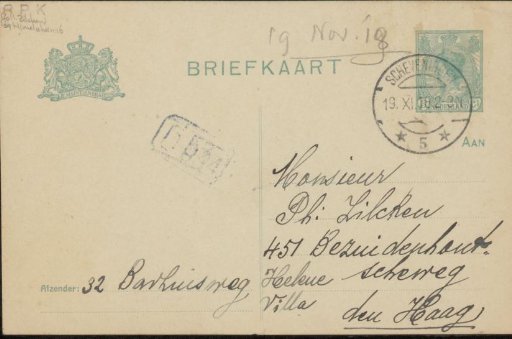 R.P.K
19 Nov. 18
BRIEFKAART
SCHEVENINGEN
19.XI.18.2-3N
5
AAN
Monsieur
Ph. Zilcken
451 Bezuidenhout-
scheweg
Helene
Villa
den Haag
Afzender: 32 Badhuisweg